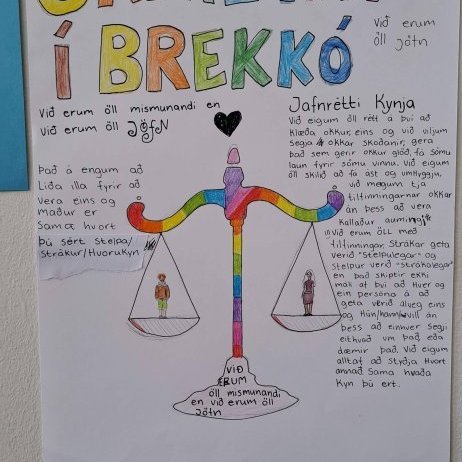 Í BREKKÓ
Við erum
öll jöfn
Við erum öll mismunandi en
Við erum öll JÖFN
Það á engum að
Líða illa fyrir að
Vera eins og
maður er
Sama hvort
þú sért Stelpa/
Strákur/Hvorukyn
Jafnrétti Kynja
Við eigum öll rétt á því að
Klæða okkur eins og við viljum
Segja okkar skoðanir, gera
það sem gerir okkur glöð, fá sömu
laun fyrir sömu vinnu. Við eigum
öll skilið að fá ást og umhyggju,
við megum tjá
tilfinningarnar okkar
án þess að vera
Kallaður aumingi
Við erum ÖLL með
tilfinningar. Strákar geta
verið "Stelpulegar" og
Stelpur verið "strákalegar"
en það skiptir ekki
mak af því að Hver og
ein persóna á að
geta verið alveg eins
og Hún/hann/ vill án
þess að einhver segji
eitthvað um það, eða
dæmir það. Við eigum
alltaf að Styðja Hvort
annað. Sama hvaða
Kyn þú ert.
VIÐ
ERUM
öll mismunandi
en við erum öll
Jöfn